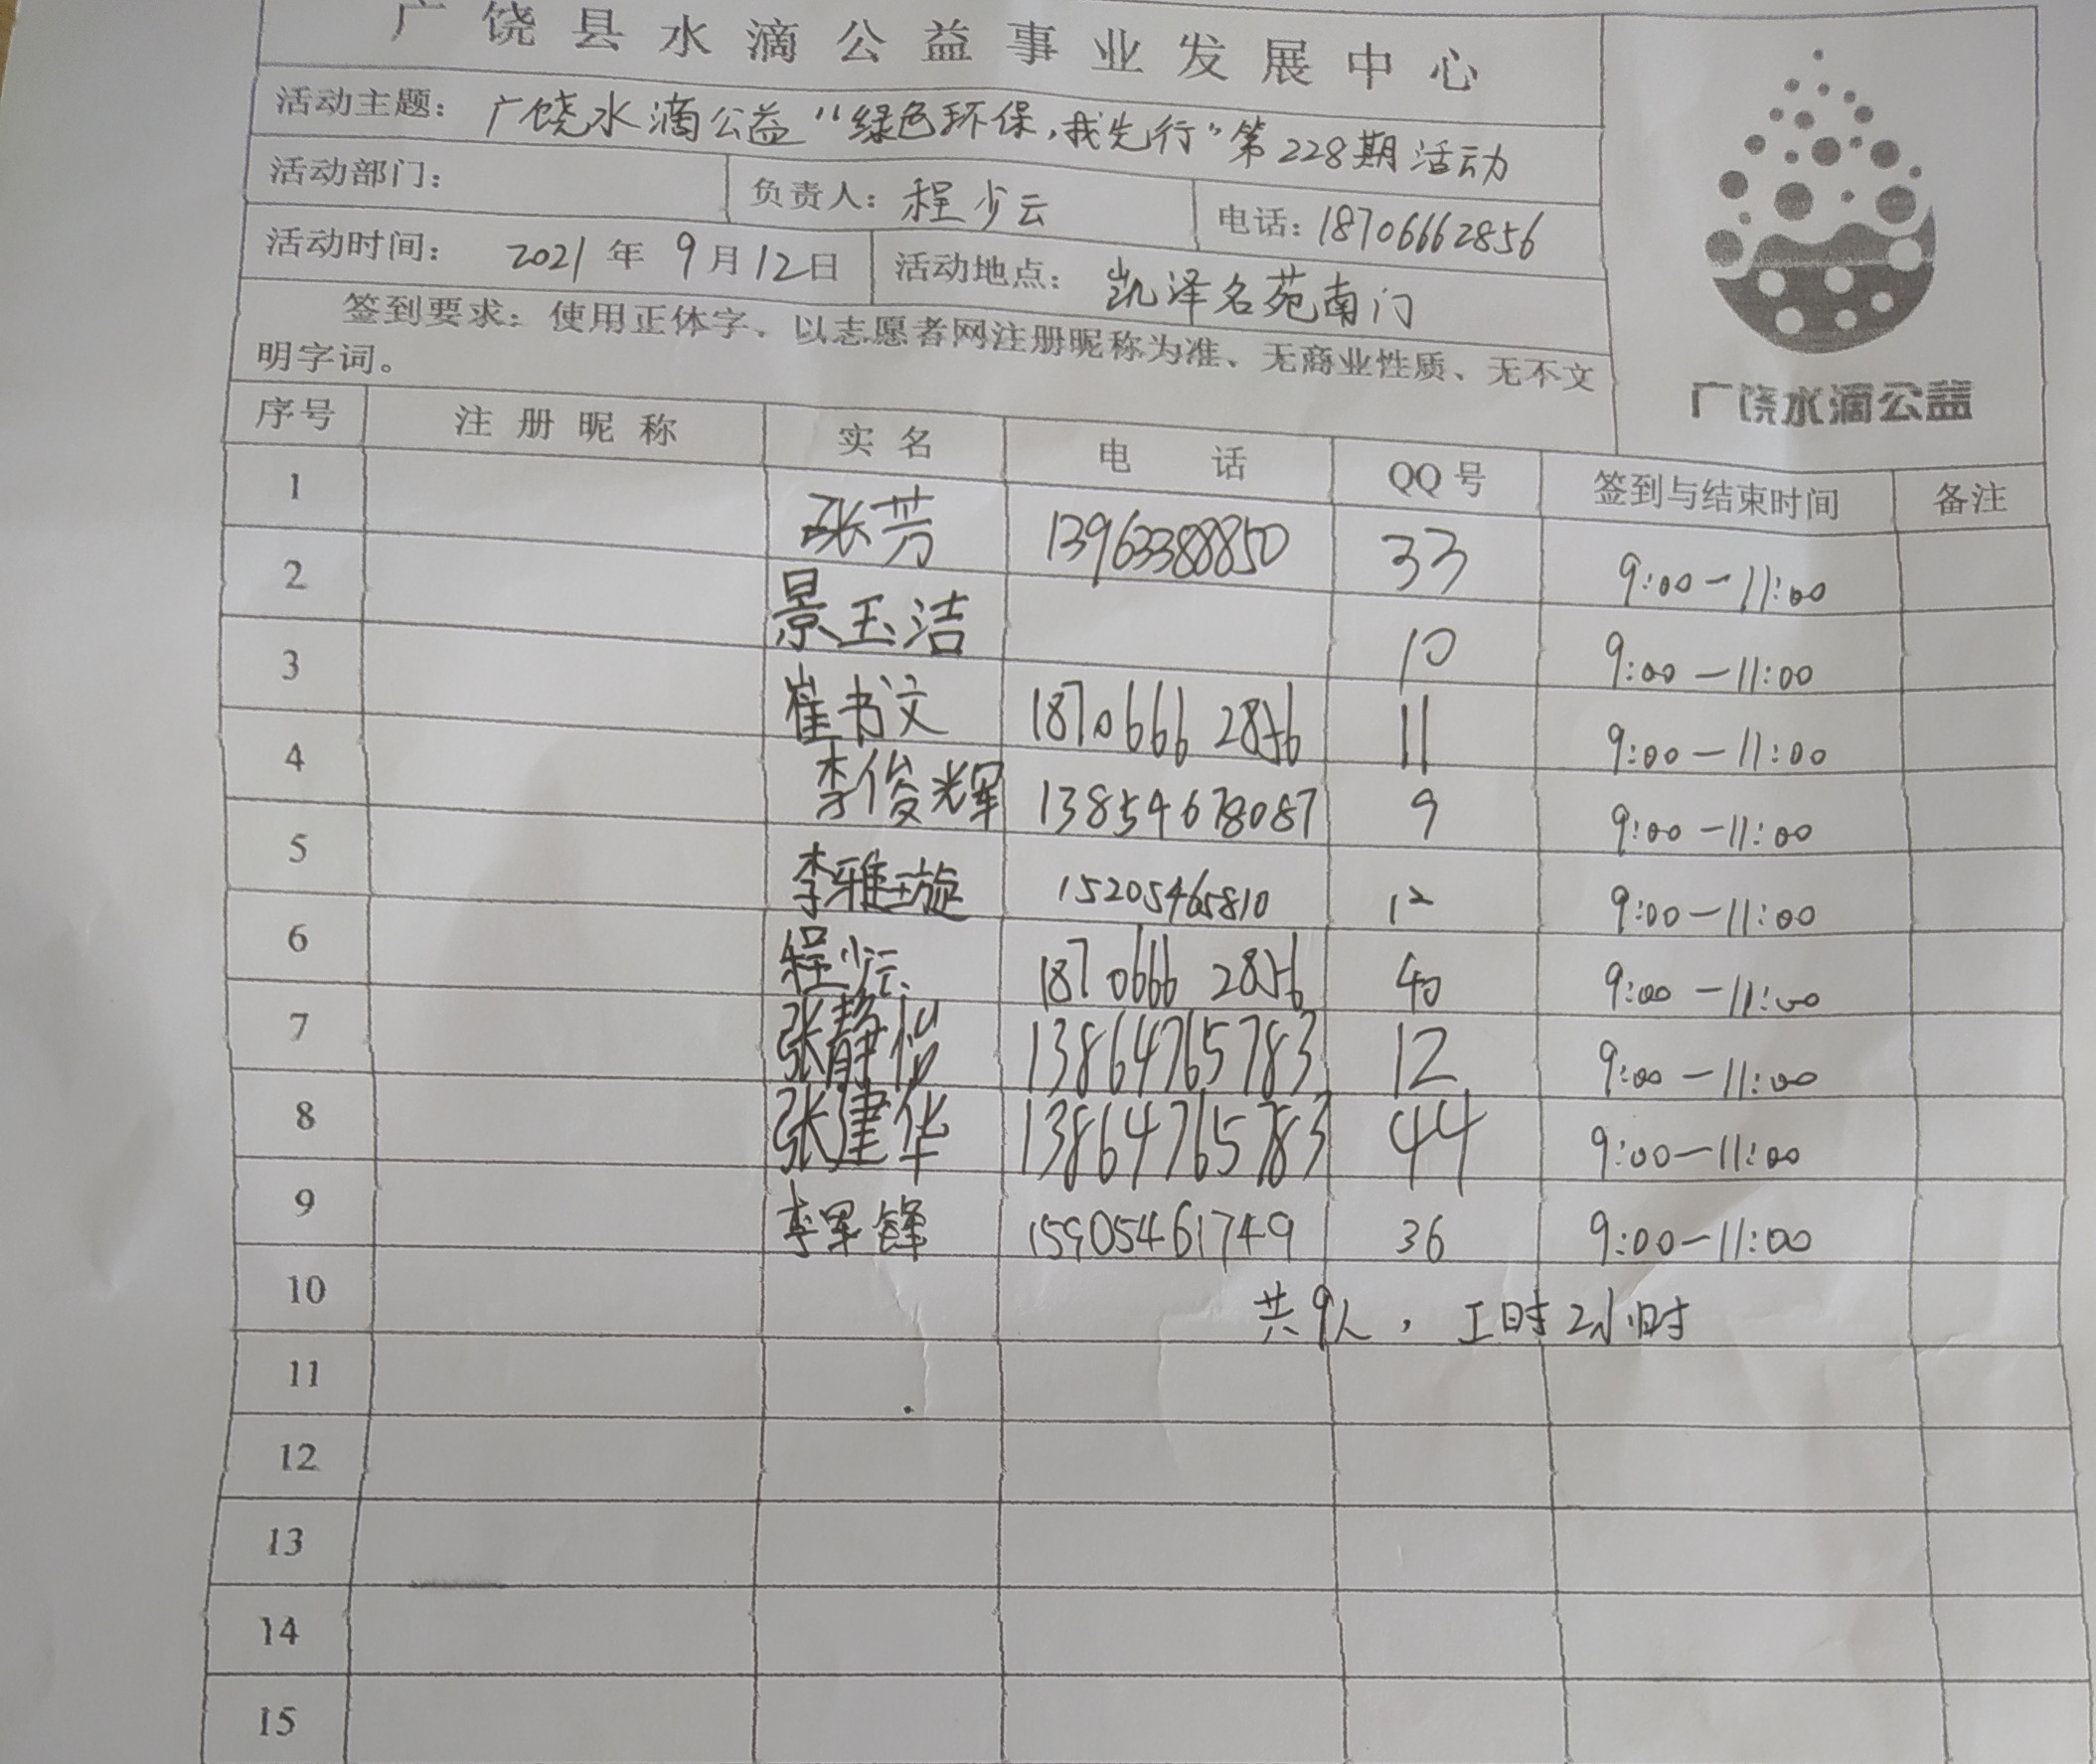 广饶县水滴公益事业发展中心
活动主题：广饶水滴公益“绿色环保，我先行”第228期活动
活动部门： 负责人：程少云 电话：18706662856
活动时间：2021年9月12日 活动地点：凯泽名苑南门
签到要求：使用正体字、以志愿者网注册昵称为准、无商业性质、无不文
明字词。
广饶水滴公益
序号 注册昵称 实名 电话 QQ号 签到与结束时间 备注
1 张芳 13963388850 33 9:00-11:00
2 景玉洁 10 9:00-11:00
3 崔书文 18706662856 11 9:00-11:00
4 李俊辉 13854678087 9 9:00-11:00
5 李雅璇 15205465810 12 9:00-11:00
6 程少云 18706662856 40 9:00-11:00
7 张静怡 13864765783 12 9:00-11:00
8 张建华 13864765783 44 9:00-11:00
9 李军锋 15905461749 36 9:00-11:00
10 共9人，工时2小时
11
12
13
14
15